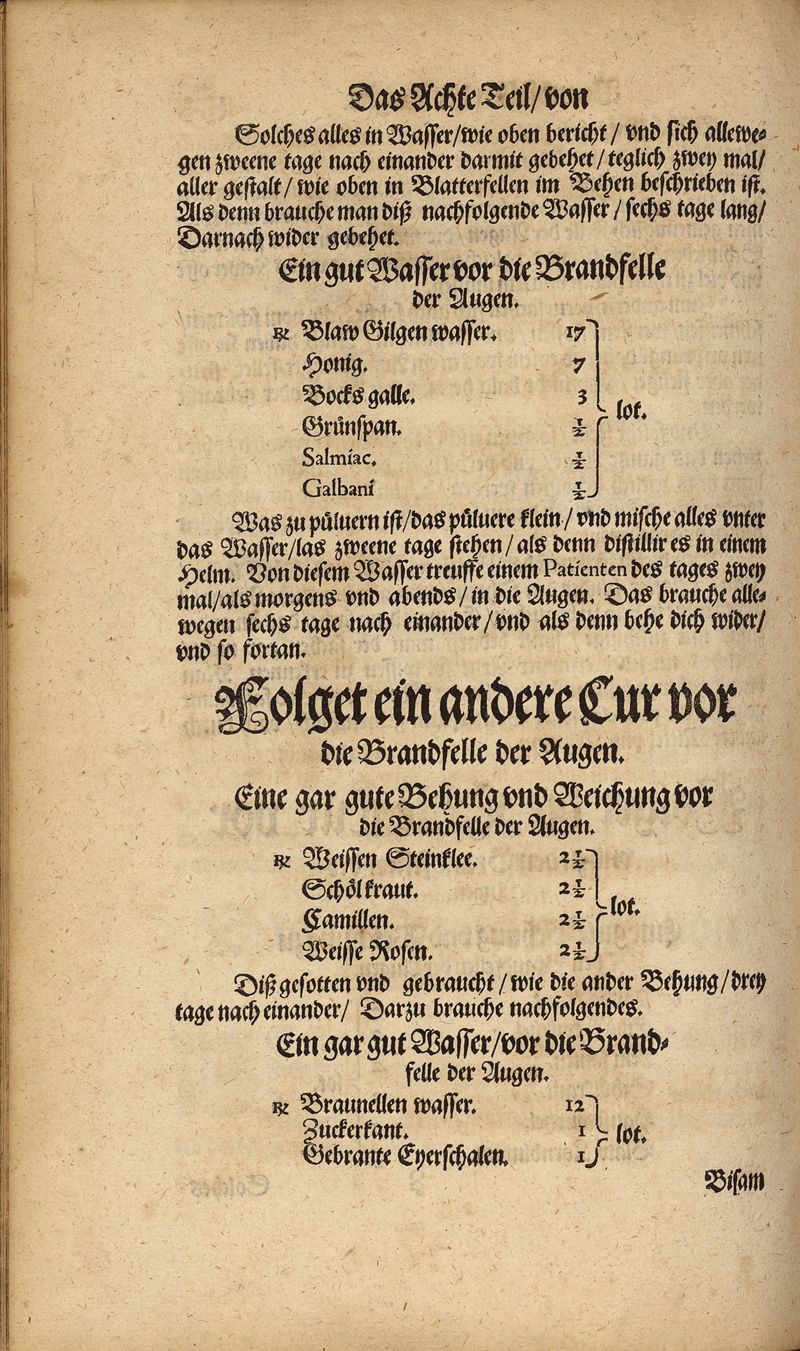 Das Achte Teil/von
Solches alles in Wasser/wie oben bericht/ vnd sich allewe⸗
gen zweene tage nach einander darmit gebehet/teglich zwey mal/
aller gestalt/ wie oben in Blatterfellen im Behen beschrieben ist.
Als denn brauche man diß nachfolgende Wasser/ sechs tage lang/
Darnach wider gebehet.
Ein gut Wasser vor die Brandfelle
der Augen.
℞ Blaw Gilgen wasser. 17
Honig. 7
Bocks galle. 3
lot.
Grünspan. ½
Salmiac. ½
Galbani ½
Was zu püluern ist/das püluere klein/ vnd mische alles vnter
das Wasser/las zweene tage stehen/ als denn distillir es in einem
Helm. Von diesem Wasser treuffe einem Patienten des tages zwey
mal/als morgens vnd abends/ in die Augen. Das brauche alle⸗
wegen sechs tage nach einander/vnd als denn behe dich wider/
vnd so fortan.
Folget ein andere Cur vor
die Brandfelle der Augen.
Eine gar gute Behung vnd Weichung vor
die Brandfelle der Augen.
℞ Weissen Steinklee. 2½
Schölkraut. 2½
lot.
Camillen. 2½
Weisse Rosen. 2½
Diß gesotten vnd gebraucht/wie die ander Behung/drey
tage nach einander/ Darzu brauche nachfolgendes.
Ein gar gut Wasser/vor die Brand⸗
felle der Augen.
℞ Braunellen wasser. 12
Zuckerkant. 1 lot.
Gebrante Eyerschalen. 1
Bisam